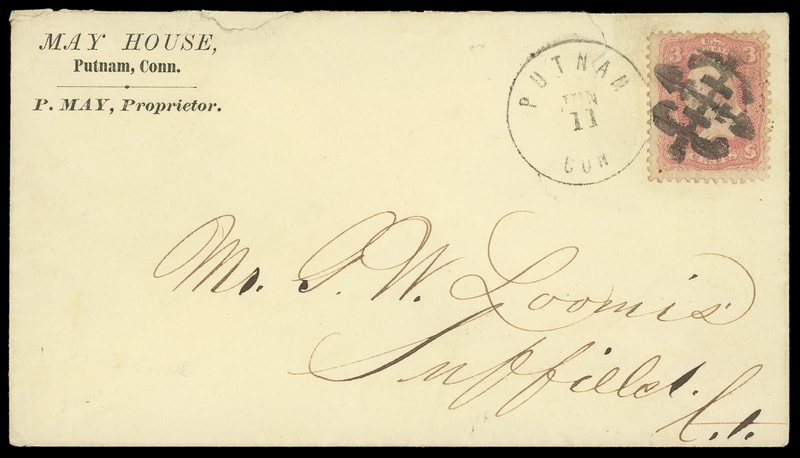 MAY HOUSE,
Putnam, Conn.
P. MAY, Proprietor.
PUTNAM
JUN
11
CON
3 U.S. 3
CENTS
Mr. G. W. Loomis
Suffield.
Ct.